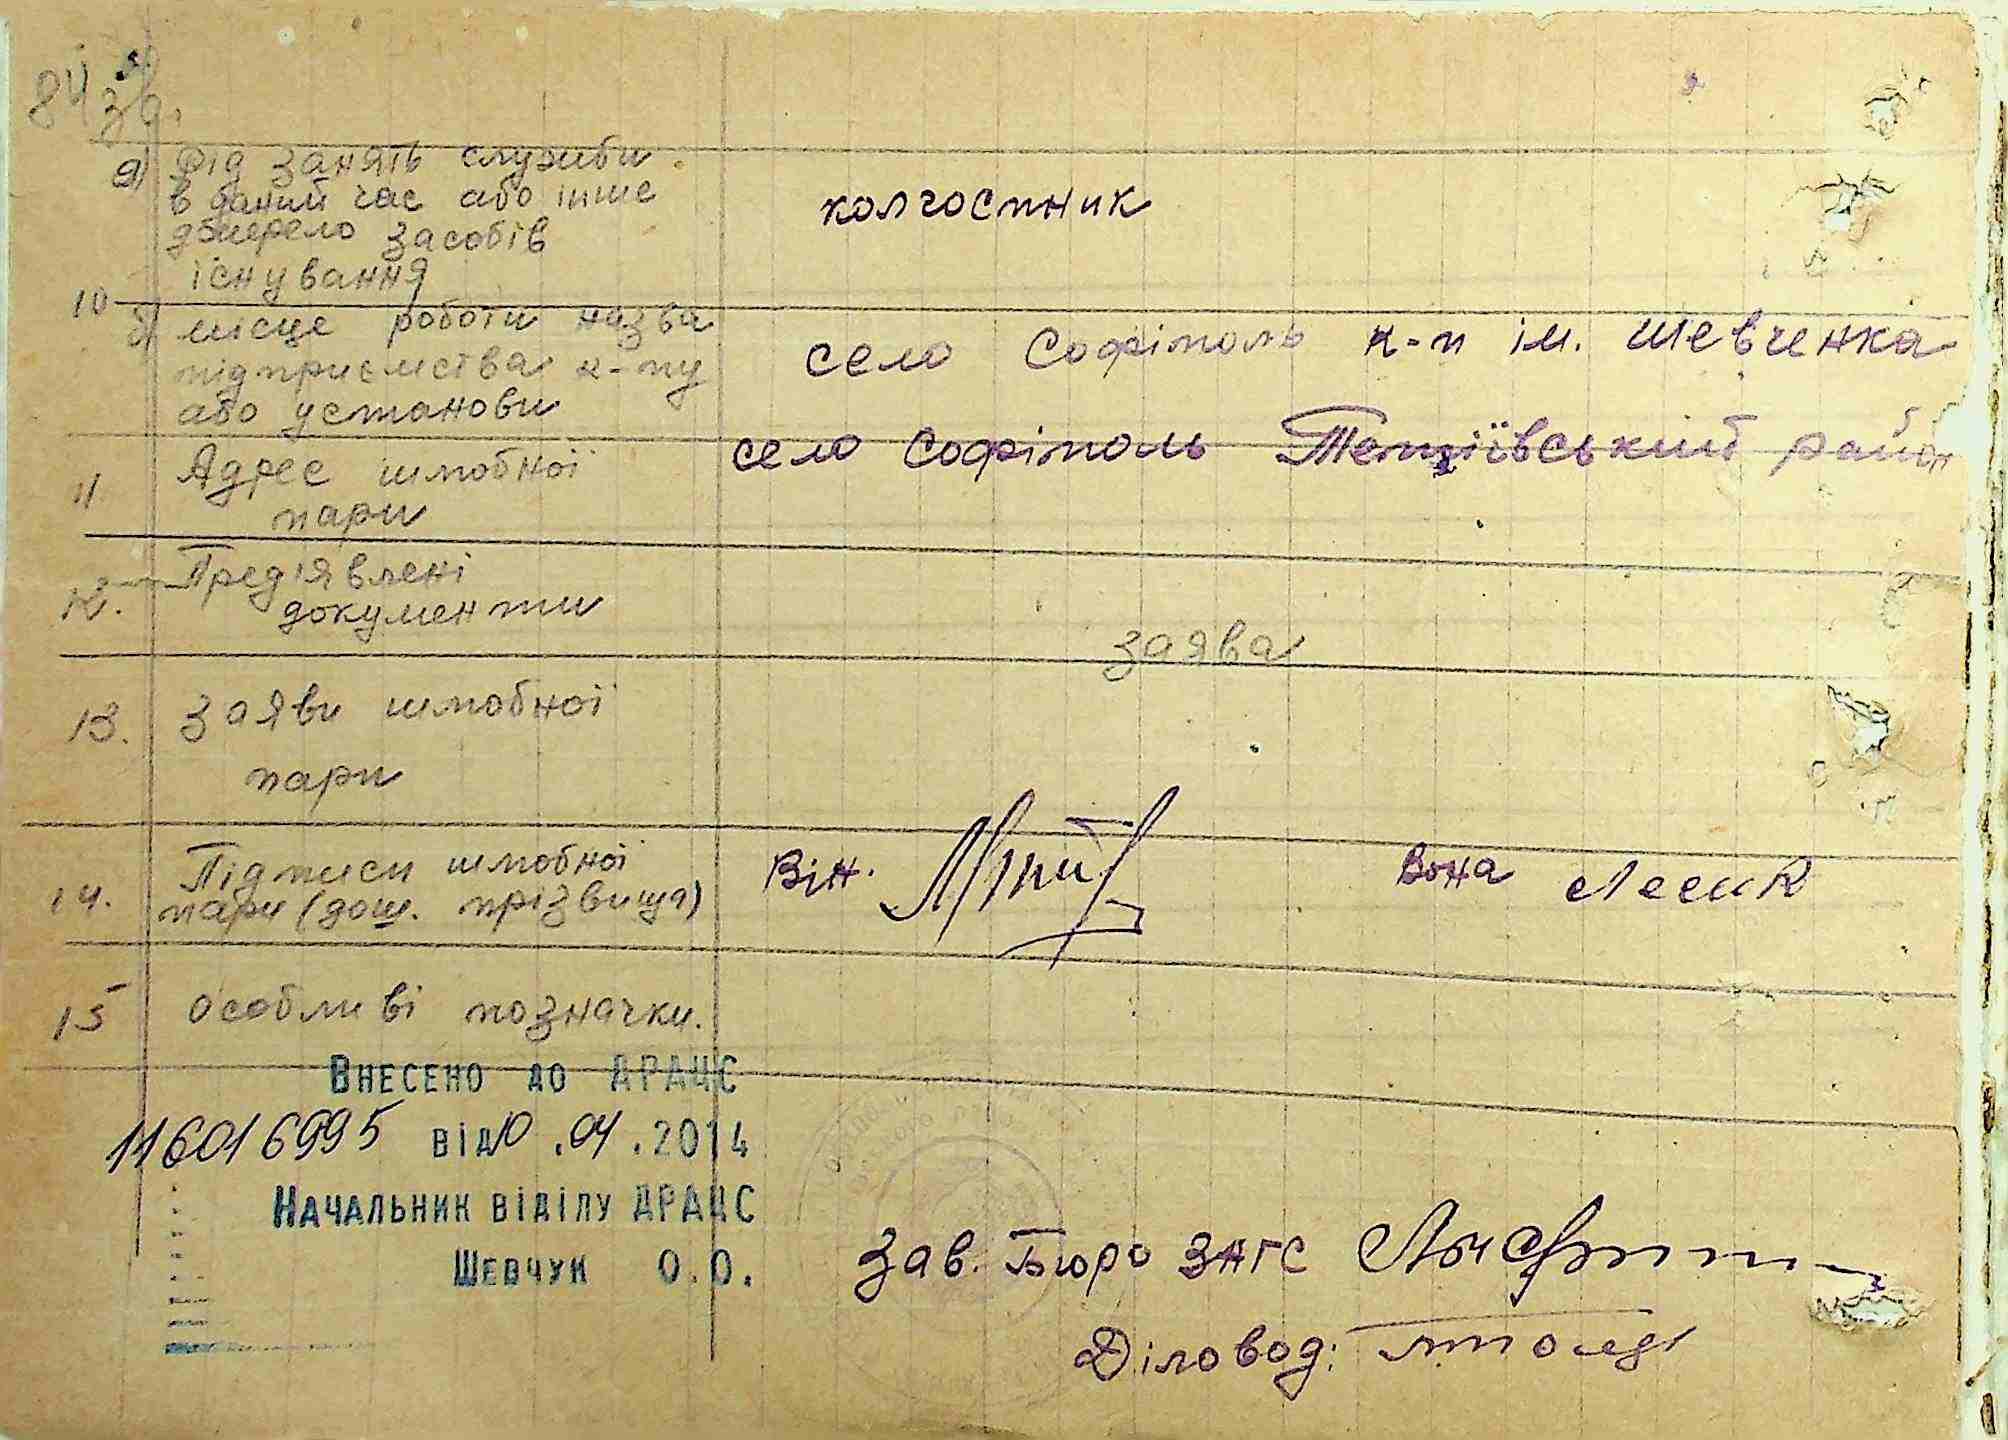 84 зв.
а) Рід занять служби
в даний час або інше
джерело засобів
існування
колгоспник
10
б) місце роботи назва
підприємства к-пу
або установи
село Софіполь к-п ім. Шевченка
11. Адрес шлюбної
пари
село Софіполь Тетіївський район
12. Пред'явлені
документи
заява
13. Заяви шлюбної
пари
14. Підписи шлюбної
пари (дош. прізвища)
Він.
Вона Лесик
15 Особливі позначки.
ВНЕСЕНО ДО ДРАЦС
116016995 від 10.04.2014
НАЧАЛЬНИК ВІДІЛУ ДРАЦС
ШЕВЧУК О.О.
Зав. Бюро ЗАГС
Діловод: